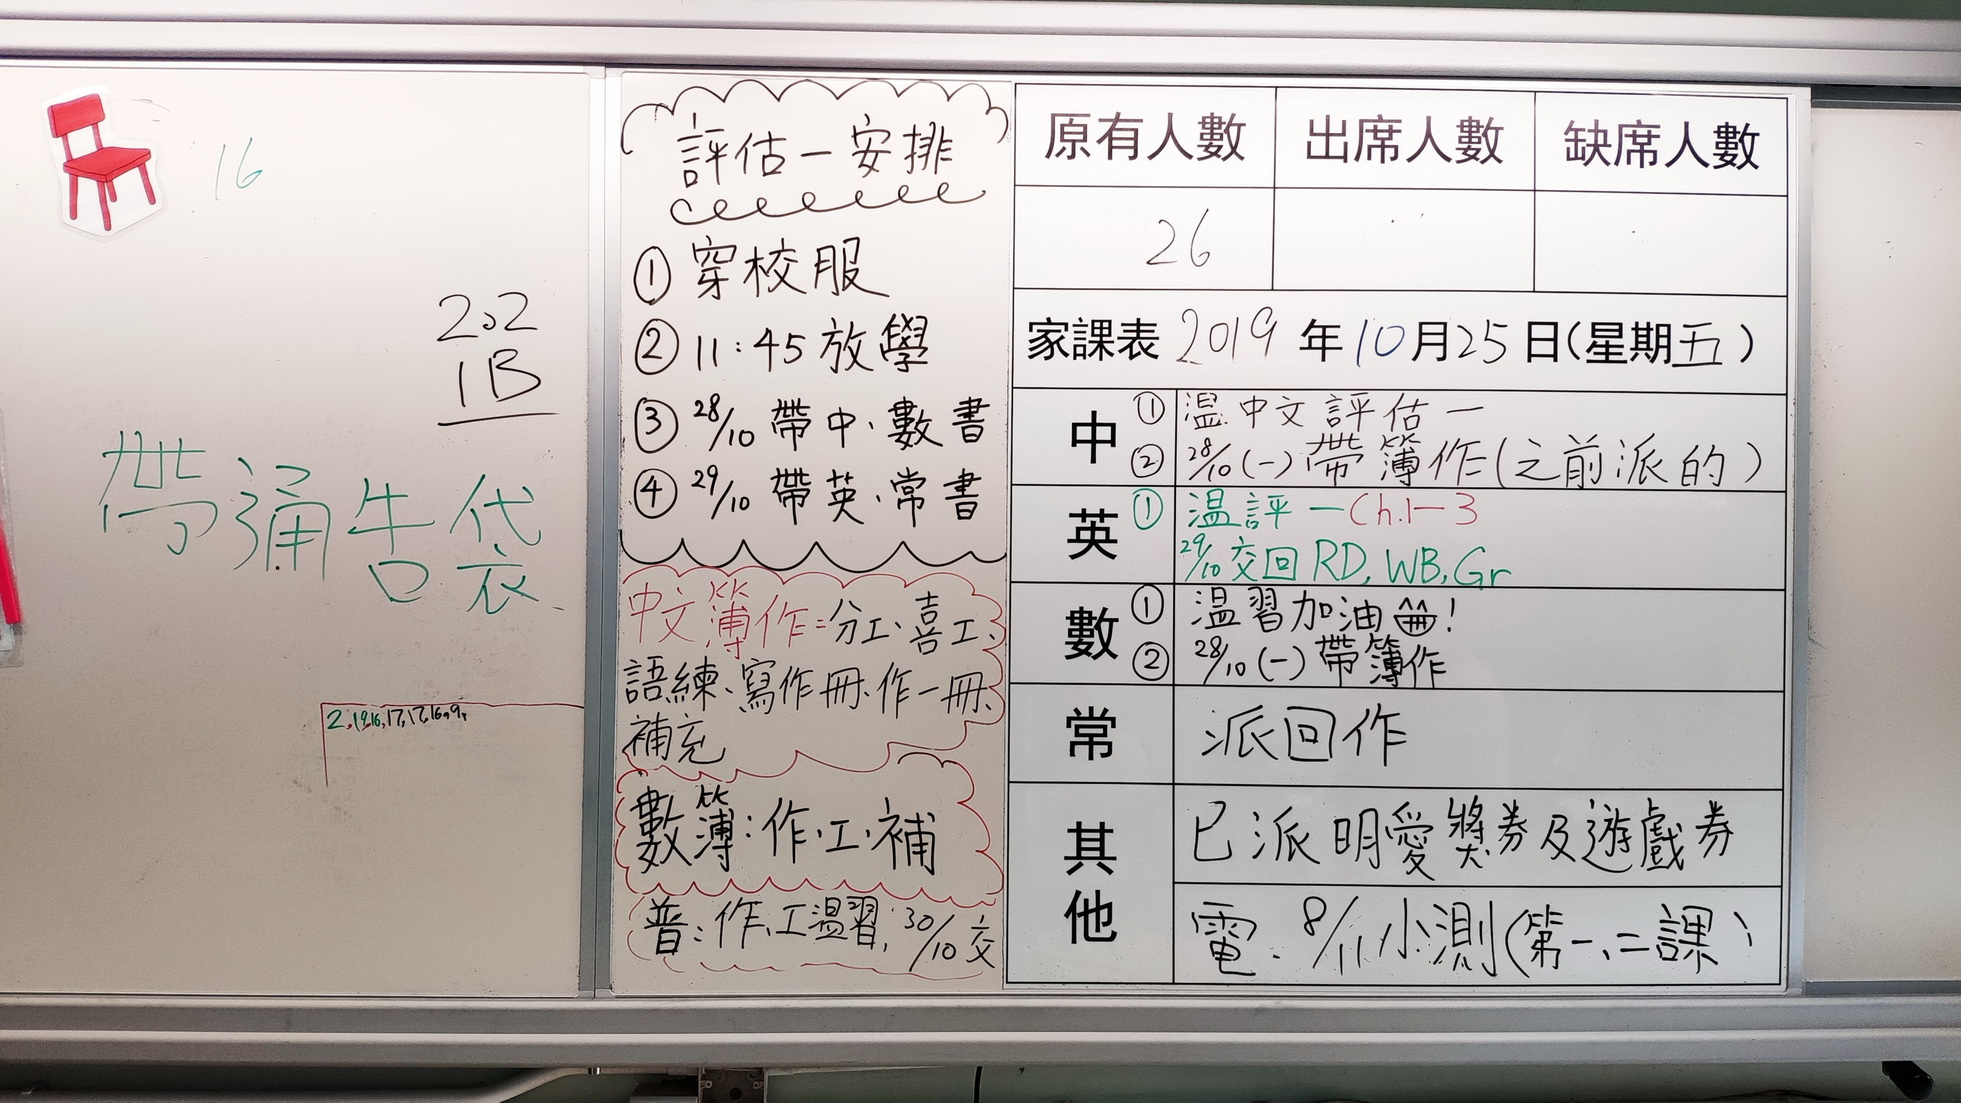 16
202
1B
帶通告袋
2,19,16,17,17,16,9,
評估一安排
① 穿校服
② 11:45 放學
③ 28/10 帶中、數書
④ 29/10 帶英、常書
中文簿作:分工、喜工、
語練、寫作冊、作一冊、
補充
數簿:作、工、補
普:作、工溫習, 30/10 交
原有人數 出席人數 缺席人數
26
家課表 2019 年 10 月 25 日(星期五)
中 ① 溫中文評估一
② 28/10 (一) 帶簿作(之前派的)
英 ① 溫評一Ch.1-3
29/10 交回 RD, WB, Gr
數 ① 溫習加油!
② 28/10 (一) 帶簿作
常 派回作
其他 已派明愛獎券及遊戲券
電. 8/11 小測(第一、二課)